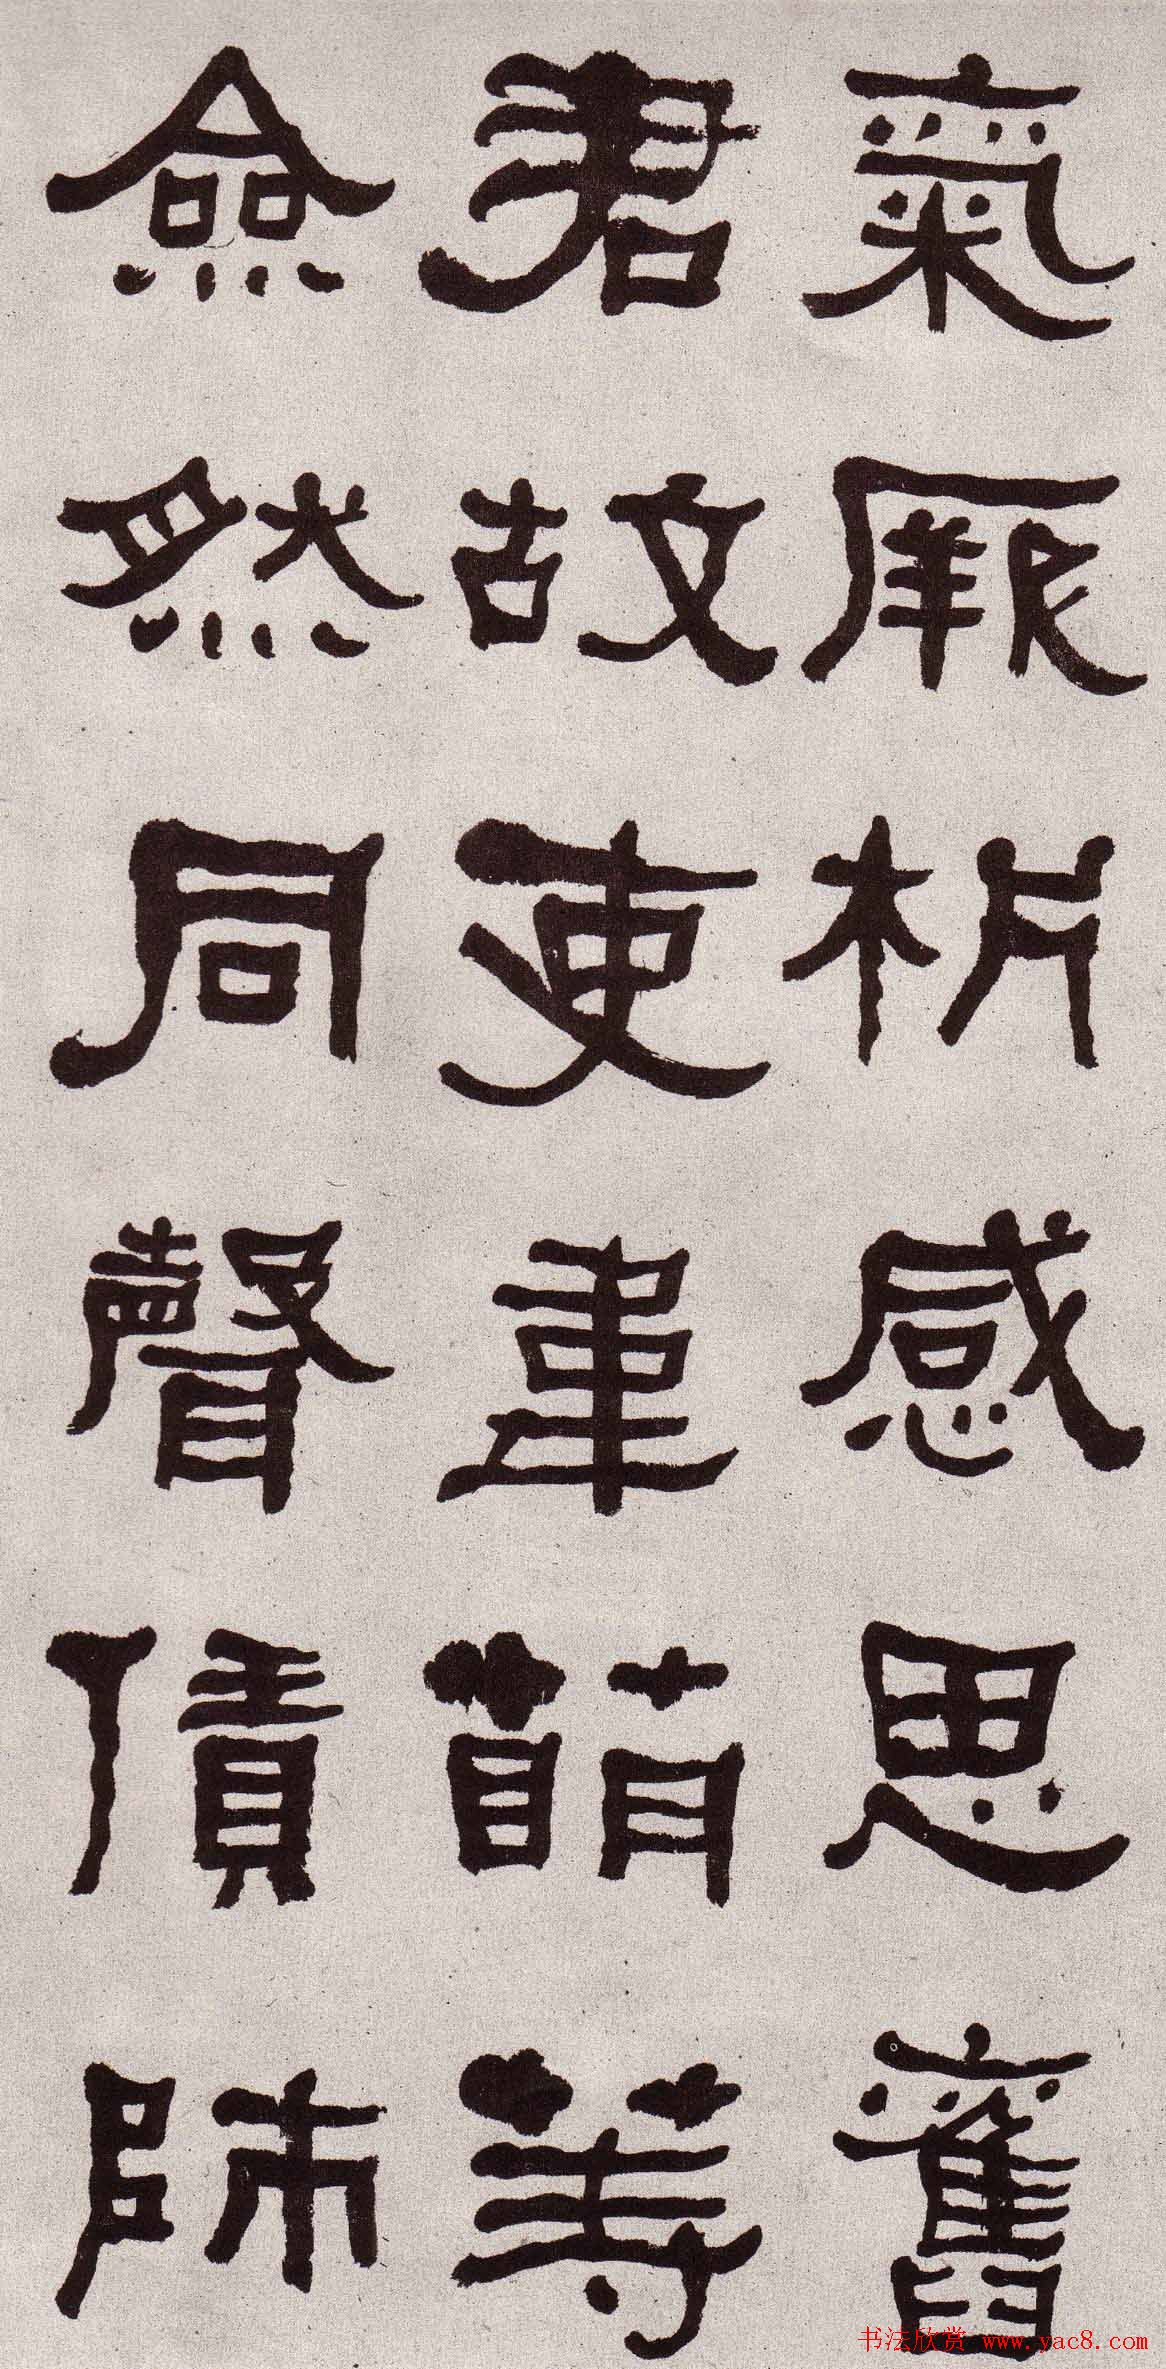 氣厥析感思舊
君故吏韋萌等
僉然同聲賃師
书法欣赏 www.yac8.com